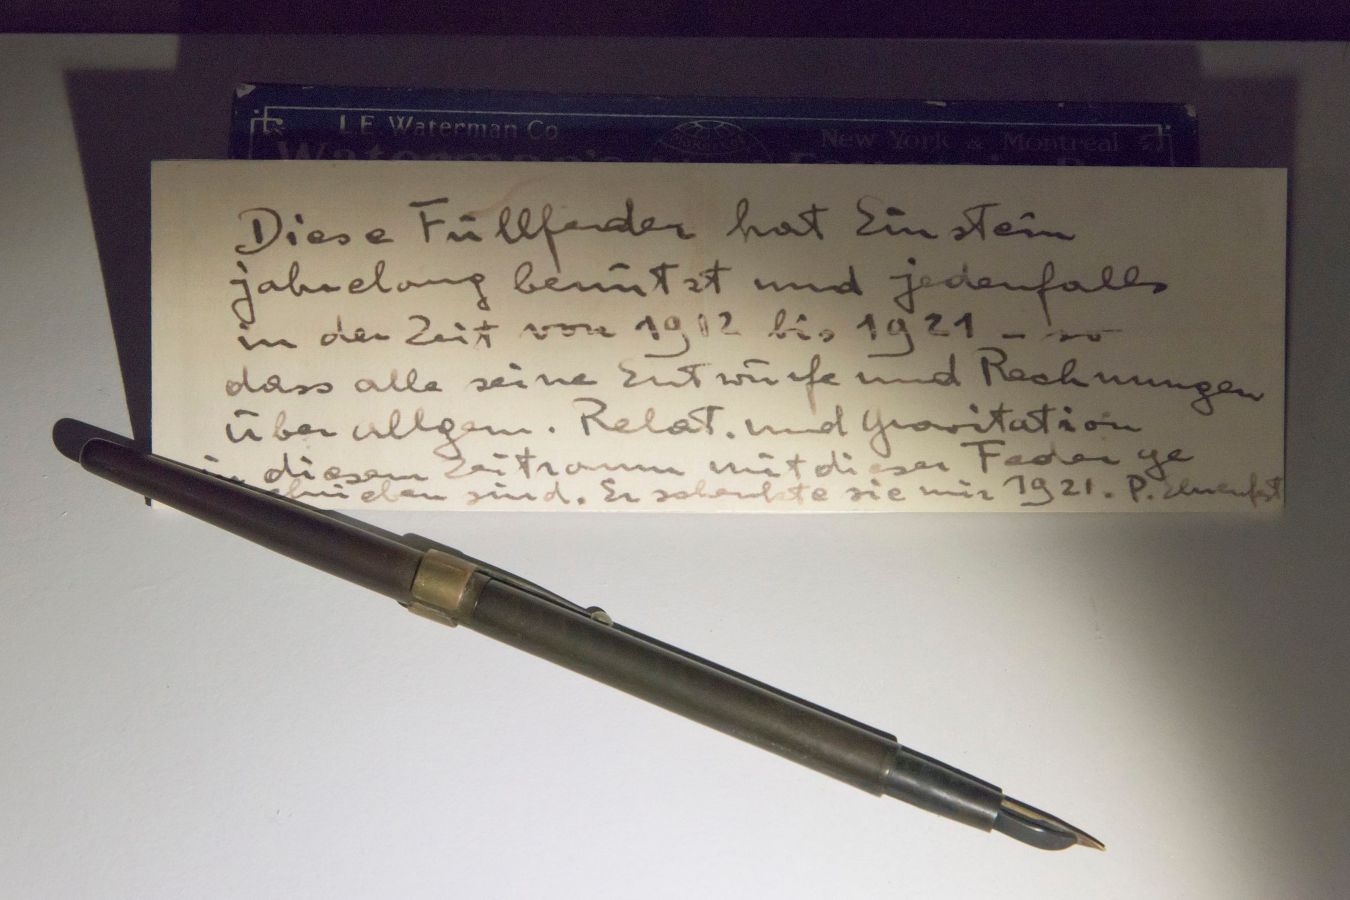 L E Waterman Co New York & Montreal
Diese Füllfeder hat Einstein
jahrelang benützt und jedenfalls
in der Zeit von 1912 bis 1921 – so
dass alle seine Entwürfe und Rechnungen
über allgem. Relat. und Gravitation
in diesem Zeitraum mit dieser Feder ge
schrieben sind. Er schenkte sie mir 1921. P. Ehrenfest